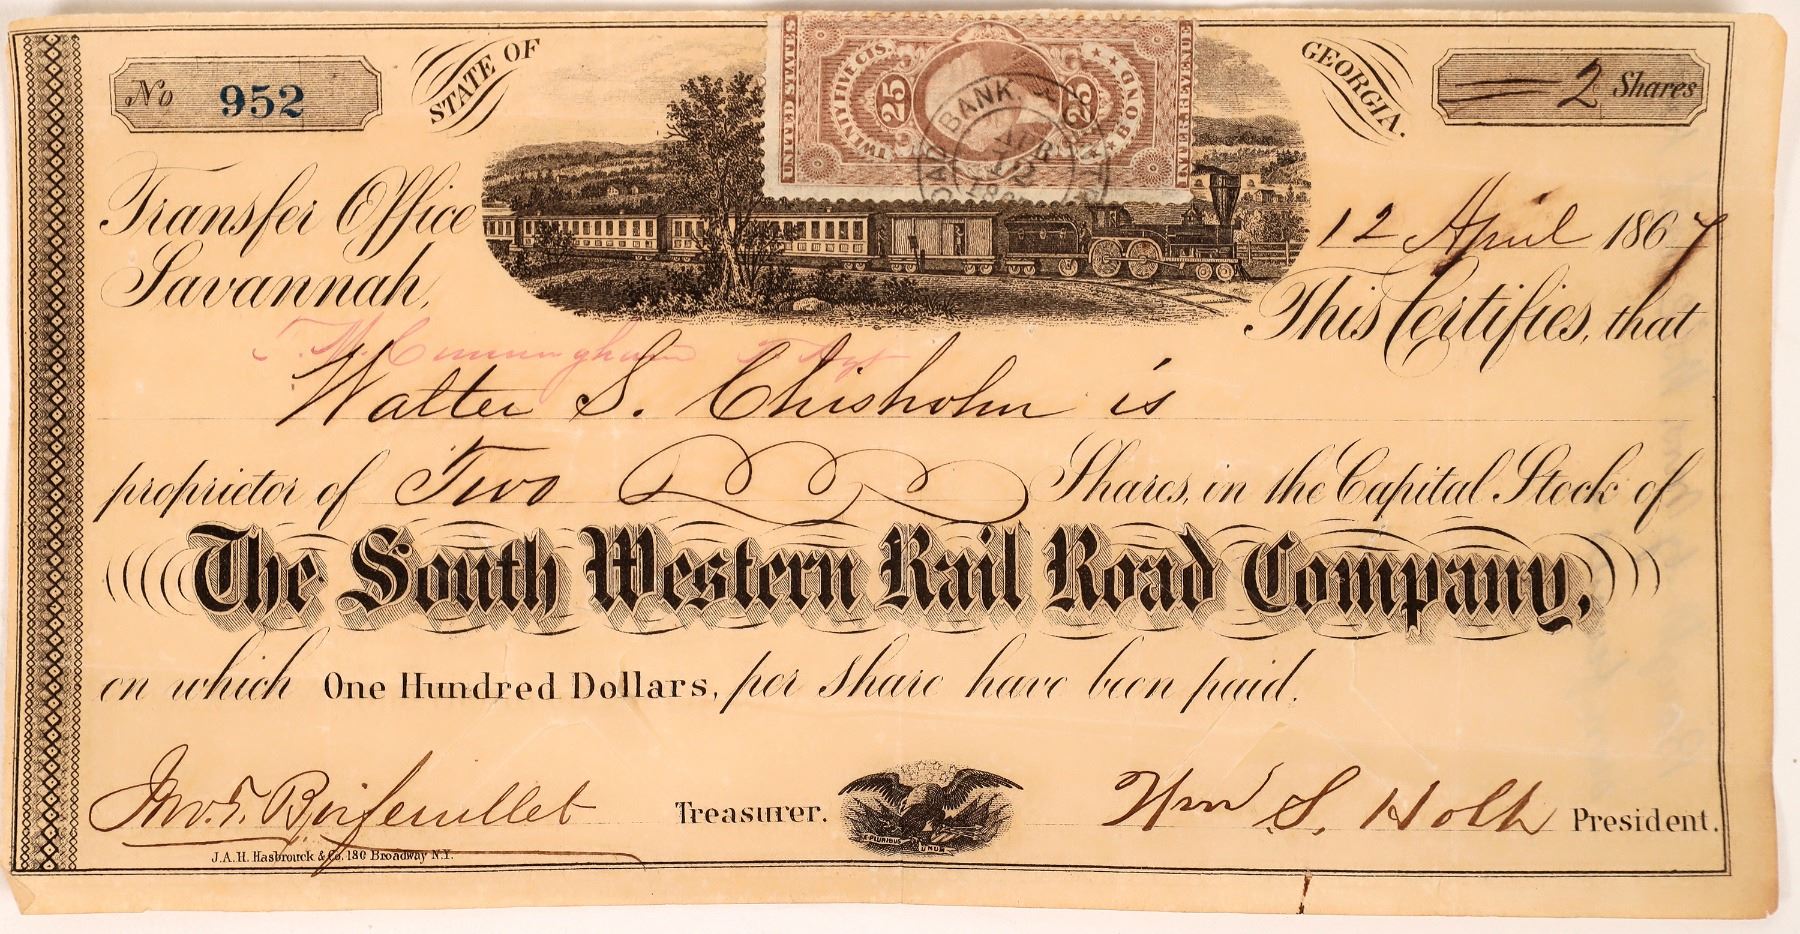 No 952
STATE OF
GEORGIA.
2 Shares
UNITED STATES
TWENTY FIVE CTS.
25
25
BOND
INTER. REVENUE
BANK
Transfer Office
Savannah,
12 April 1867
This Certifies, that
T. M. Cunningham T. Agt
Walter S. Chisholm is
proprietor of Two Shares, in the Capital Stock of
The South Western Rail Road Company,
on which One Hundred Dollars, per share have been paid.
Jno. T. Boifeuillet Treasurer.
E PLURIBUS UNUM
Wm S. Holt President.
J.A.H. Hasbrouck & Co. 180 Broadway N.Y.